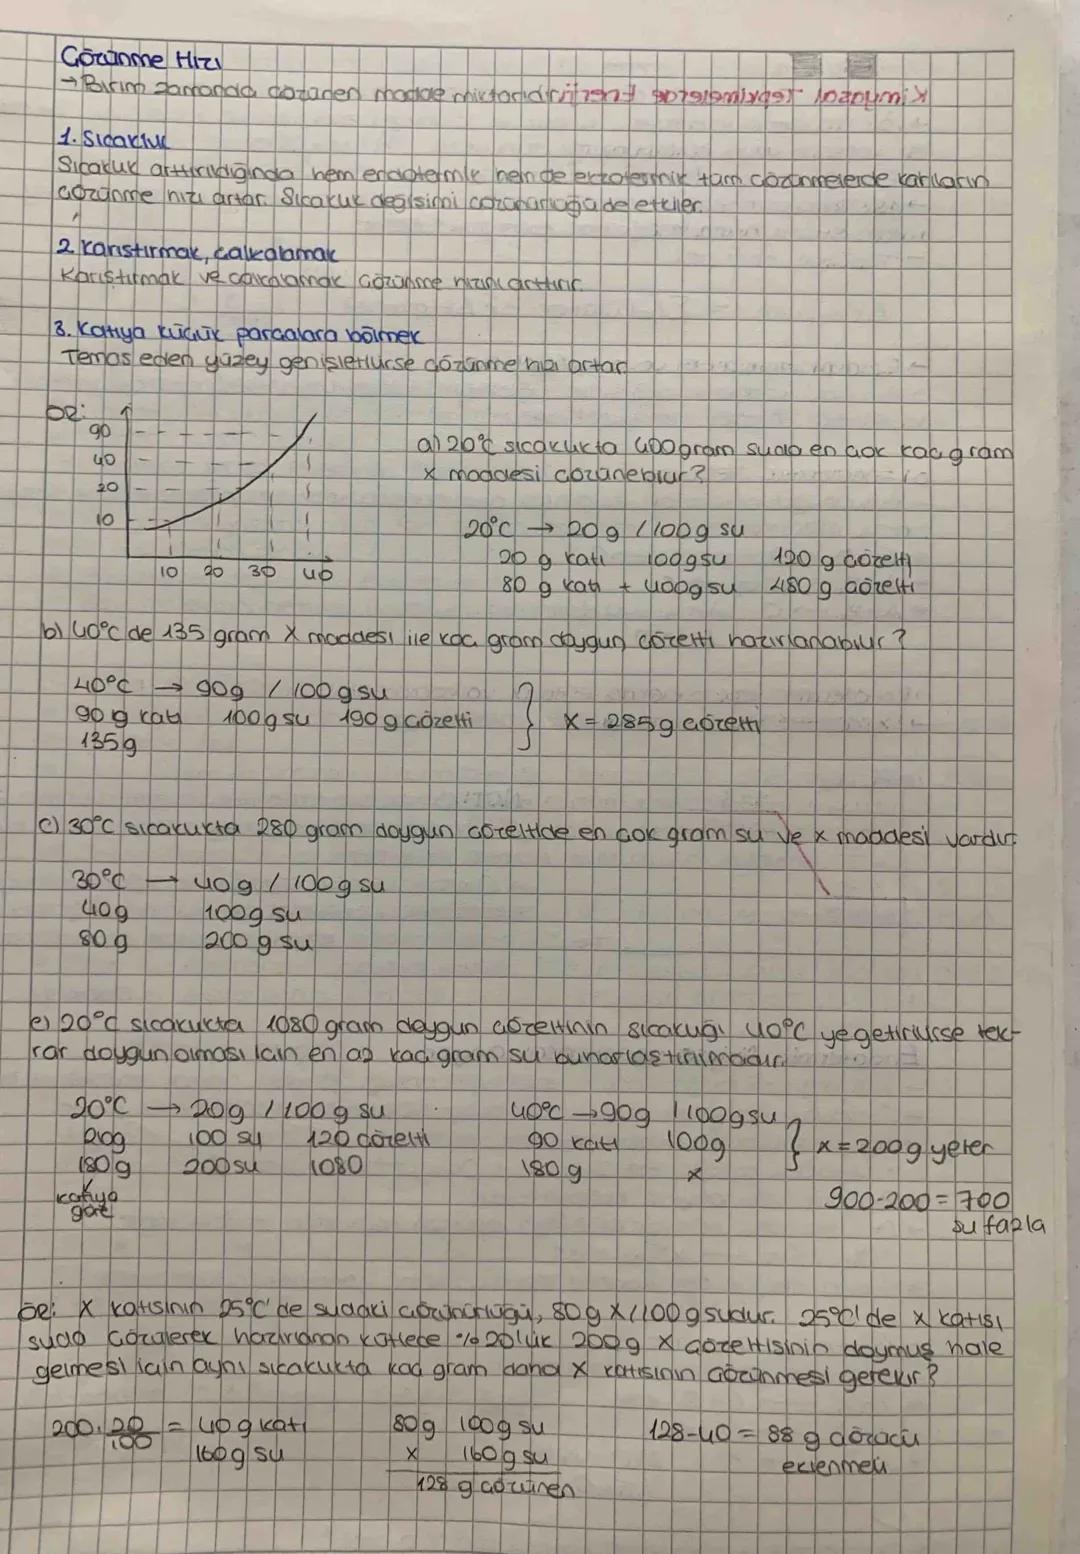 Çözünme Hızı
→ Birim zamanda çözünen madde miktarıdır.
1. Sıcaklık
Sıcaklık arttırıldığında hem endotermik hem de ekzotermik tüm çözünmelerde katıların
çözünme hızı artar. Sıcaklık değişimi çözünürlüğü de etkiler.
2. Karıştırmak, çalkalamak
Karıştırmak ve çalkalamak çözünme hızını arttırır.
3. Katıyı küçük parçalara bölmek
Temas eden yüzey genişletilirse çözünme hızı artar
ör:
90
40
20
10
10 20 30 40
a) 20°C sıcaklıkta 400 gram suda en çok kaç gram
x maddesi çözünebilir?
20°C → 20g / 100g su
20 g katı 100g su 120 g çözelti
80 g katı + 400g su 480 g çözelti
b) 40°C de 135 gram X maddesi ile kaç gram doygun çözelti hazırlanabilir?
40°C → 90g / 100g su
90 g katı 100g su 190 g çözelti } x = 285g çözelti
135g
c) 30°C sıcaklıkta 280 gram doygun çözeltide en çok gram su ve x maddesi vardır.
30°C → 40g / 100g su
40g 100g su
80 g 200 g su
e) 20°C sıcaklıkta 1080 gram doygun çözeltinin sıcaklığı 40°C ye getirilirse tek-
rar doygun olması için en az kaç gram su buharlaştırılmalıdır
20°C → 20g / 100g su 40°C → 90g / 100g su
20g 100 su 120 çözelti 90 katı 100g } x = 200g yeter
180g 200 su 1080 180g x
katıya
göre
900-200 = 700
su fazla
ör: X katısının 25°C' de sudaki çözünürlüğü, 80g X/100g sudur. 25°C' de x katısı
suda çözülerek hazırlanan kütlece %20'lik 200g X çözeltisinin doymuş hale
gelmesi için aynı sıcaklıkta kaç gram daha X katısının çözünmesi gerekir?
200.20/100 = 40g katı 80g 100g su 128-40 = 88 g çözücü
160g su x 160g su eklenmeli
128 g çözünen